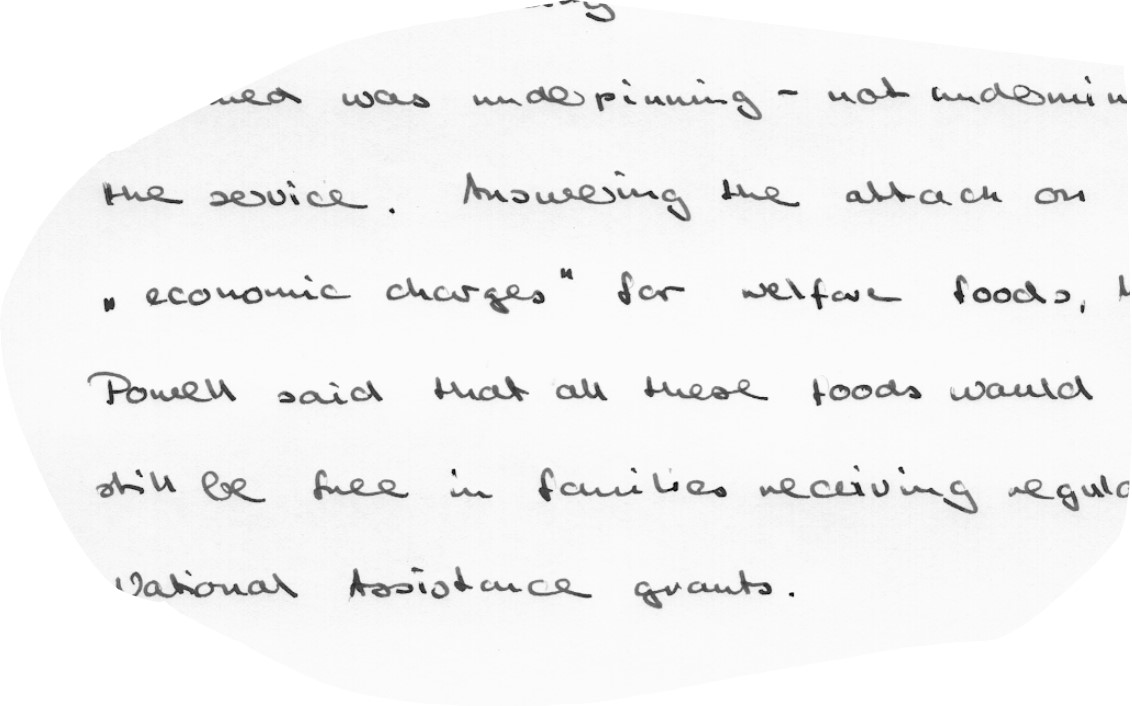 was underpinning - not
the service. Answering the attack on
„economic charges" for welfare foods,
Powell said that all these foods would
still be free in families receiving
National Assistance grants.